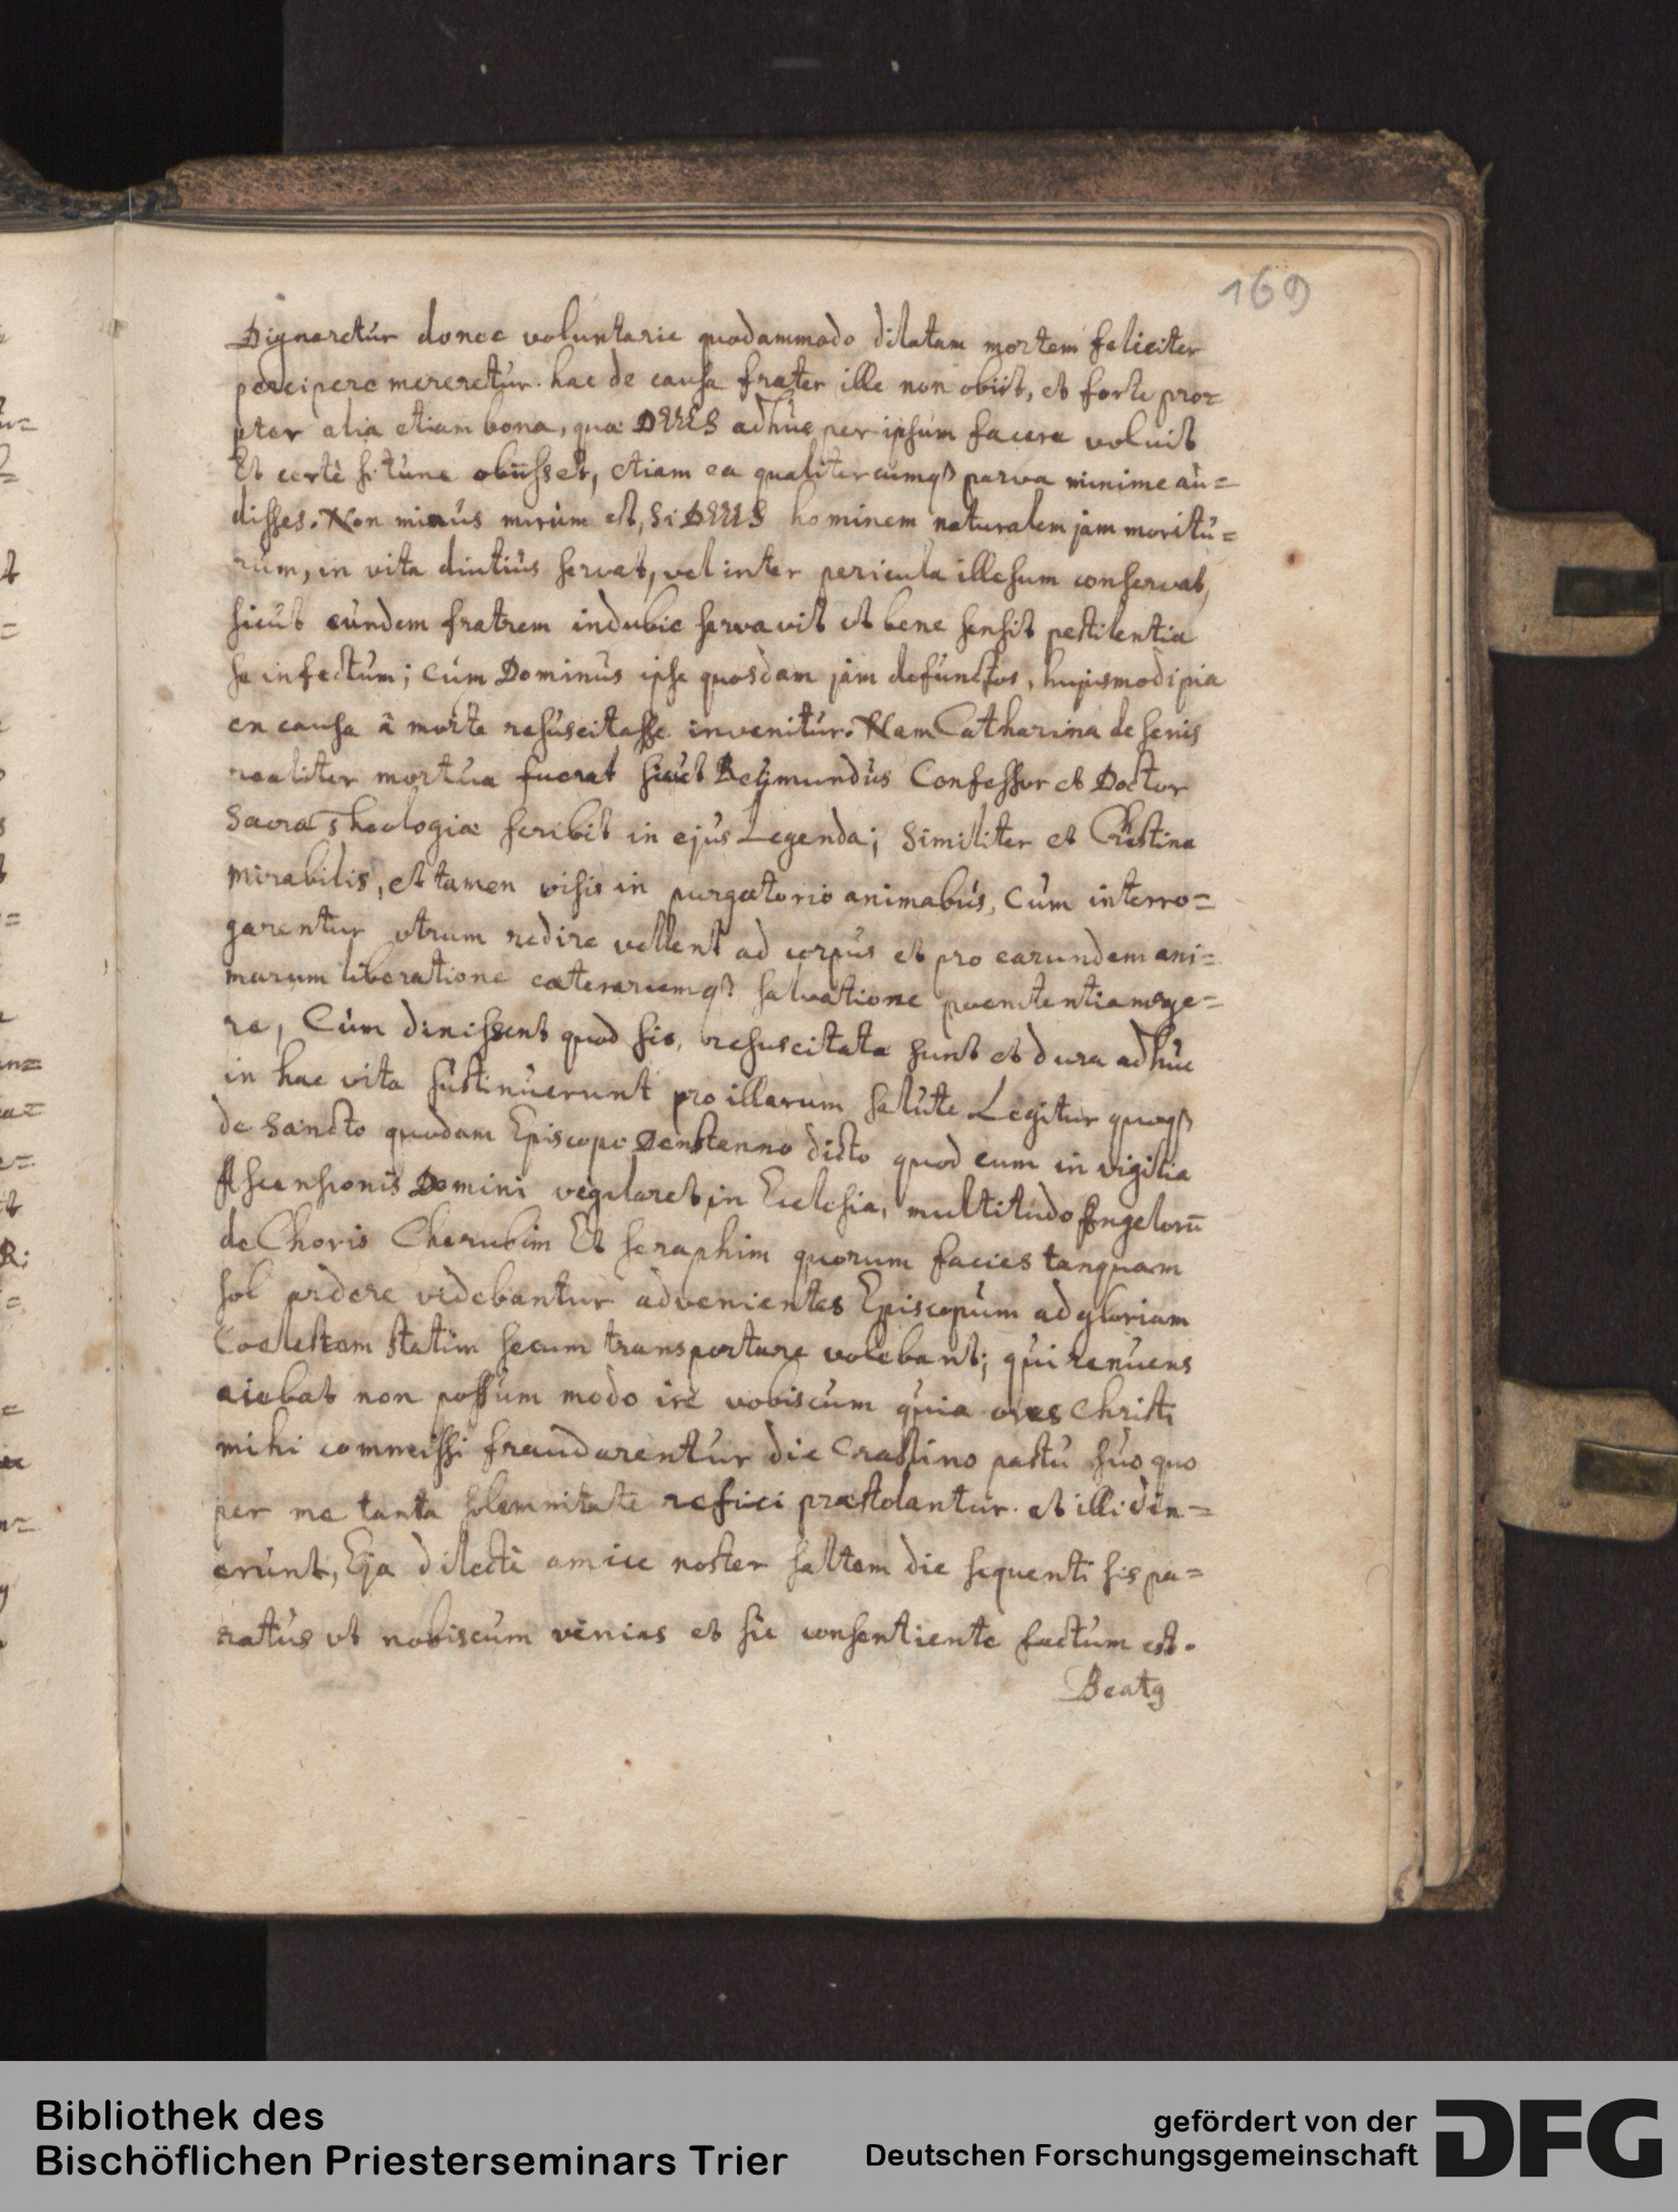 169
Dignaretur donec voluntarie quodammodo dilatam mortem feliciter
percipere mereretur. hac de causa frater ille non obiit, et forte pro=
pter alia etiam bona, quæ DEUS adhuc per ipsum facere voluit
Et certè si tunc obiisset, etiam ea qualitercumqȝ parva minime au=
disses. Non minus mirum est, Si DEUS hominem naturalem jam moritu=
rum, in vita diutius servat, vel inter pericula illesum conservat,
sicut eundem fratrem indubie servavit et bene sensit pestilentia
se infectum; Cum Dominus ipse quosdam jam defunctos, hujusmodi pia
en causa â morte resuscitasse invenitur. Nam Catharina de Senis
realiter mortua fuerat sicut Reijmundus Confessor et Doctor
Sacræ Theologiæ scribit in ejus Legenda; Similiter et Christina
Mirabilis, et tamen visis in purgatorio animabus, Cum interro=
garentur utrum redire vellent ad corpus et pro earundem ani=
marum liberatione cæterarumqȝ salvatione poenitentiam age=
re, Cum dinissent quod sic, resuscitatæ sunt et dura adhuc
in hac vita sustinuerunt pro illarum salute Legitur quoqȝ
de Sancto quodam Episcopo Denstanno dicto quod cum in vigilia
Ascensionis Domini vegilaret in Ecclesia, multitudo Angelorū
de Choris Cherubim Et Seraphim quorum facies tanquam
sol ardere videbantur advenientes Episcopum ad gloriam
Coelestem statim secum transportare volebant; qui renuens
aiebat non possum modo ire vobiscum quia oves Christi
mihi commissi fraudarentur die Crastino pastu suo quo
per me tanta solemnitate refici præstolantur. et illi din=
erunt, Eja dilecte amice noster saltem die sequenti sis pa=
ratus ut nobiscum venias et sic consentiente factum est.
Beatꝯ
Bibliothek des
Bischöflichen Priesterseminars Trier
gefördert von der
Deutschen Forschungsgemeinschaft
DFG